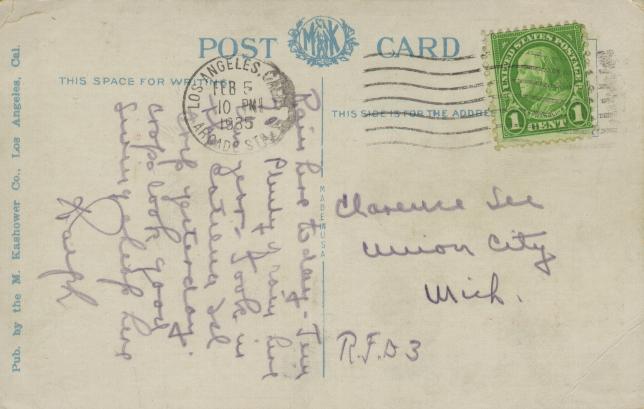 POST CARD
MK
THIS SPACE FOR WRITING
THIS SIDE IS FOR THE ADDRE
LOS ANGELES, CALIF.
FEB 5
10 PM
1935
ARCADE STA.
UNITED STATES POSTAGE
FRANKLIN
1 CENT 1
Rain here today - Tim
Plenty of rain here
this year - Took in
Catalina Isl
yesterday.
crops look good
Ralph
MADE IN USA
Clarence Lee
Union City
Mich.
R.F.D 3
Pub. by the M. Kashower Co., Los Angeles, Cal.